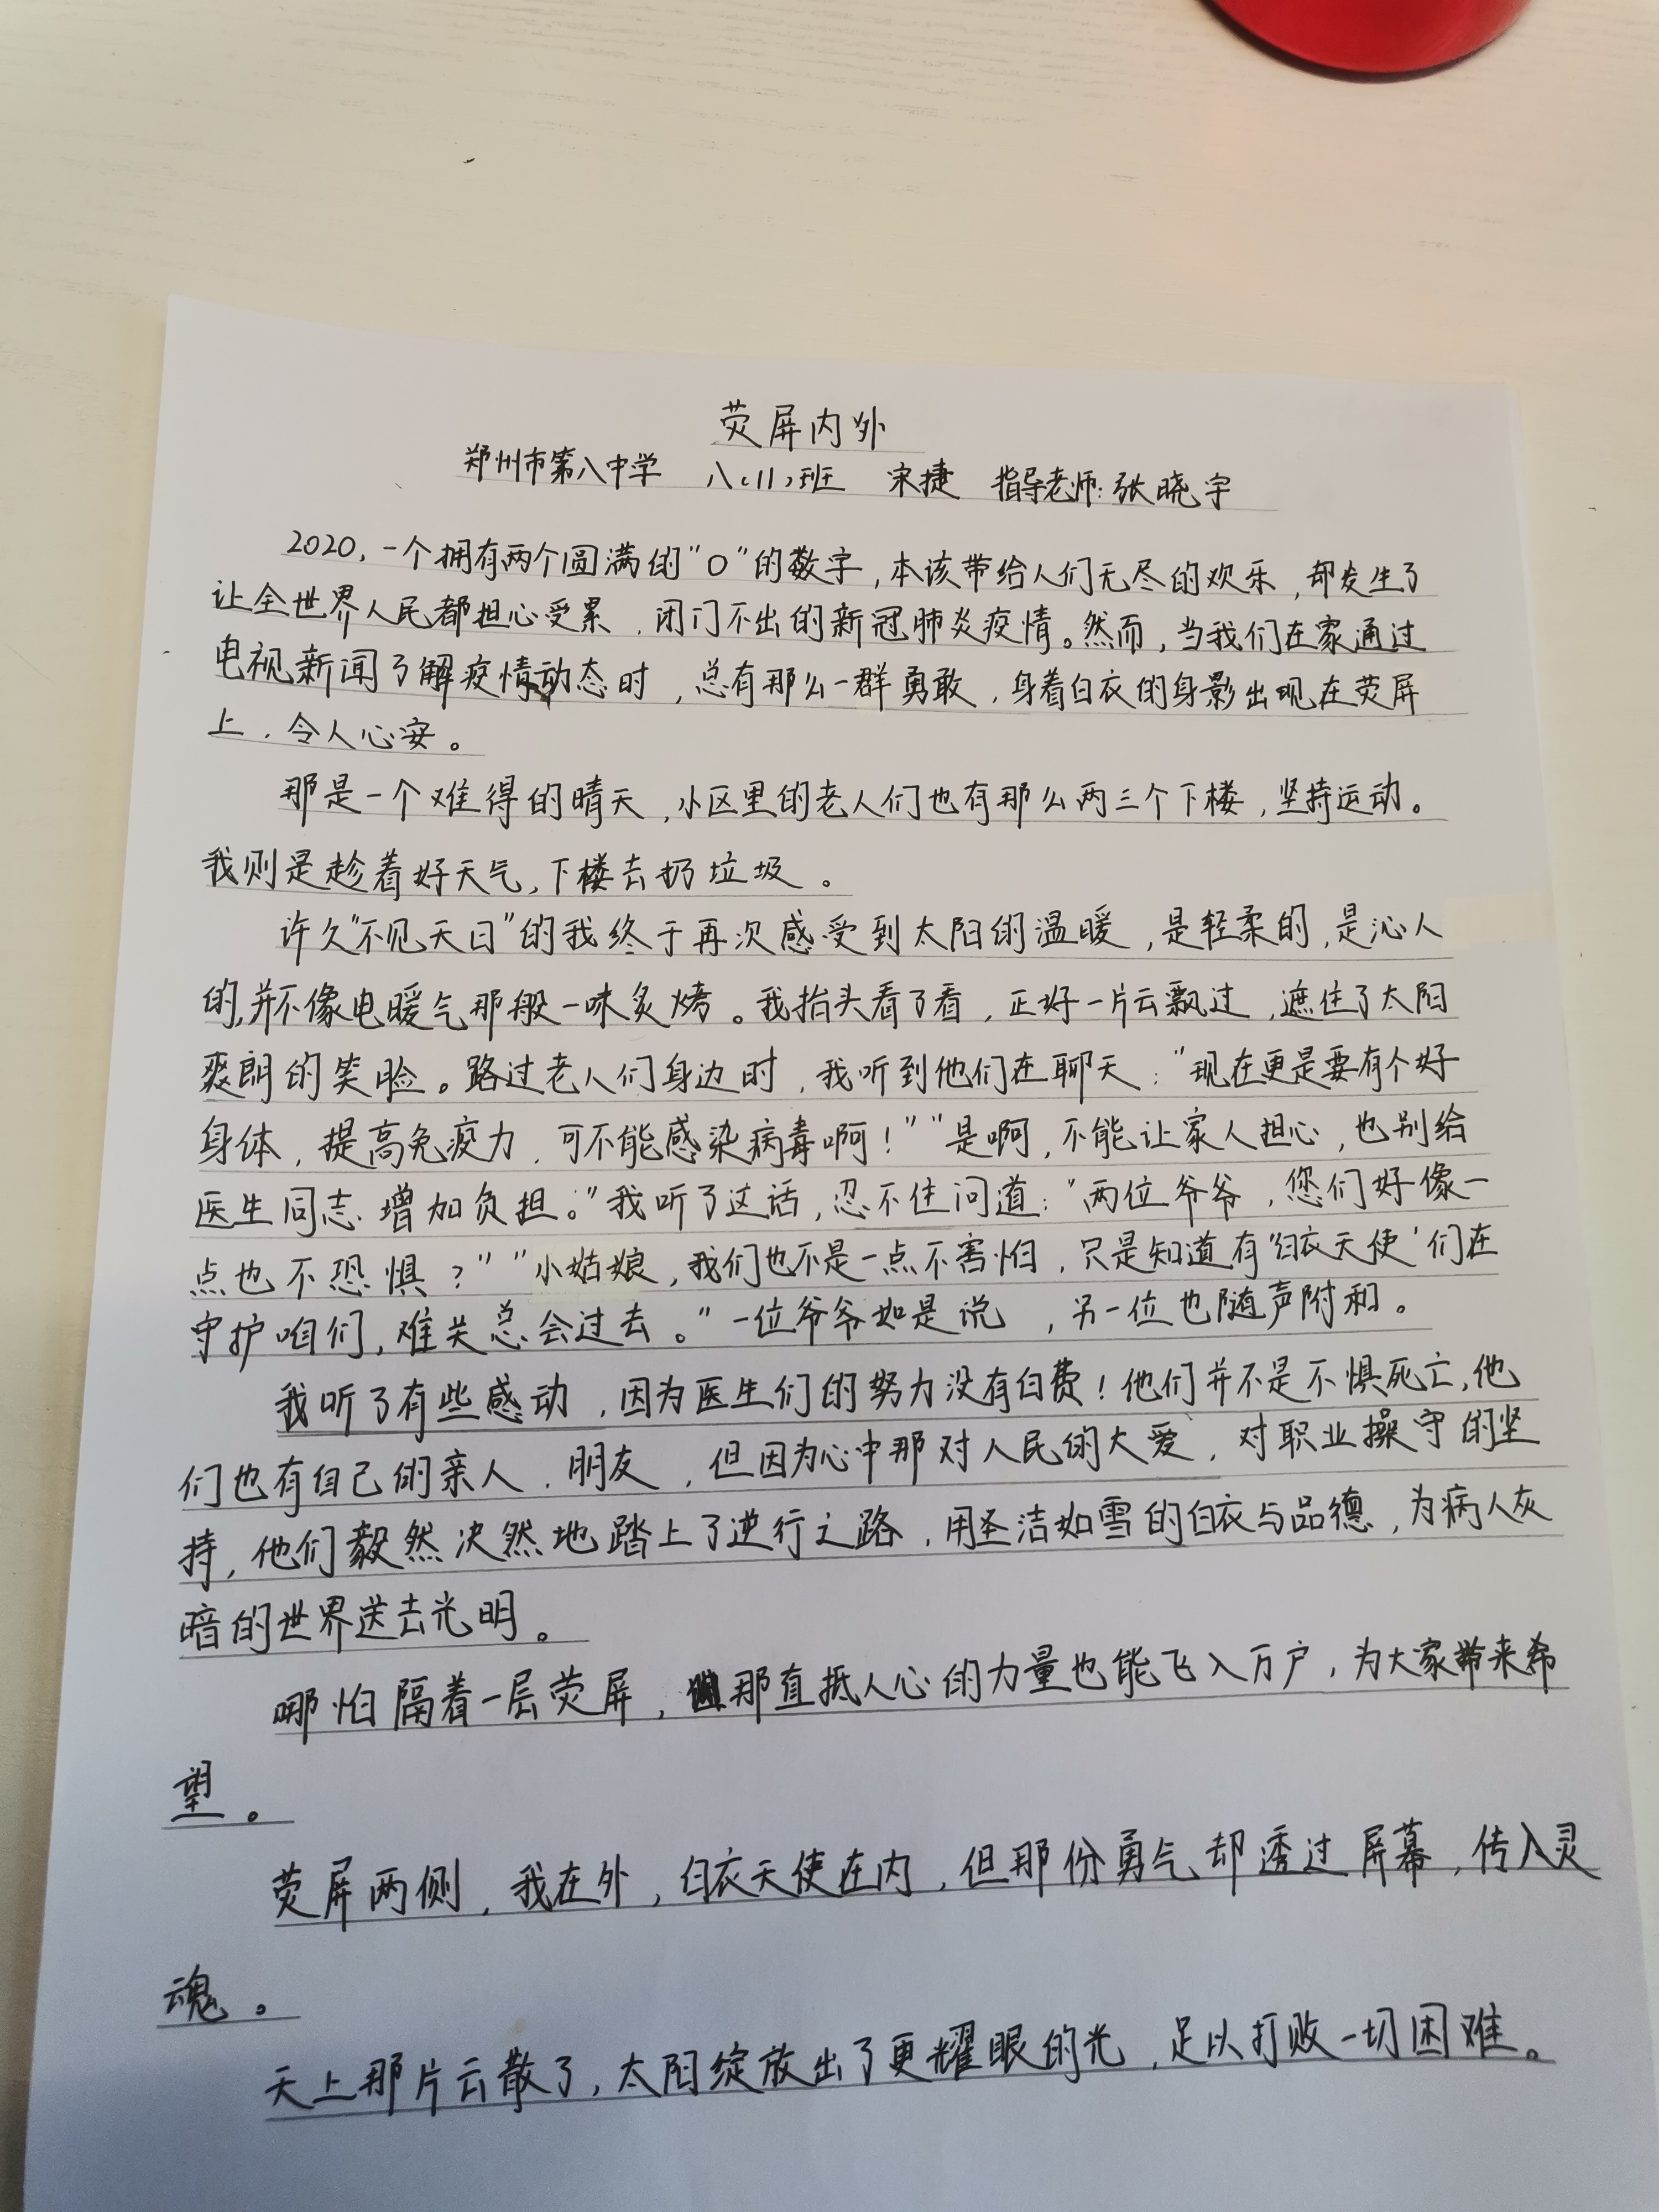 荧屏内外
郑州市第八中学 八(11)班 宋捷 指导老师:张晓宇
2020,一个拥有两个圆满的“0”的数字,本该带给人们无尽的欢乐,却发生了
让全世界人民都担心受累,闭门不出的新冠肺炎疫情。然而,当我们在家通过
电视新闻了解疫情动态时,总有那么一群勇敢,身着白衣的身影出现在荧屏
上,令人心安。
那是一个难得的晴天,小区里的老人们也有那么两三个下楼,坚持运动。
我则是趁着好天气,下楼去扔垃圾。
许久“不见天日”的我终于再次感受到太阳的温暖,是轻柔的,是沁人
的,并不像电暖气那般一味炙烤。我抬头看了看,正好一片云飘过,遮住了太阳
爽朗的笑脸。路过老人们身边时,我听到他们在聊天:“现在更是要有个好
身体,提高免疫力,可不能感染病毒啊!”“是啊,不能让家人担心,也别给
医生同志增加负担。”我听了这话,忍不住问道:“两位爷爷,您们好像一
点也不恐惧?”“小姑娘,我们也不是一点不害怕,只是知道有‘白衣天使’们在
守护咱们,难关总会过去。”一位爷爷如是说,另一位也随声附和。
我听了有些感动,因为医生们的努力没有白费!他们并不是不惧死亡,他
们也有自己的亲人、朋友,但因为心中那对人民的大爱,对职业操守的坚
持,他们毅然决然地踏上了逆行之路,用圣洁如雪的白衣与品德,为病人灰
暗的世界送去光明。
哪怕隔着一层荧屏,那直抵人心的力量也能飞入万户,为大家带来希
望。
荧屏两侧,我在外,白衣天使在内,但那份勇气却透过屏幕,传入灵
魂。
天上那片云散了,太阳绽放出了更耀眼的光,足以打败一切困难。